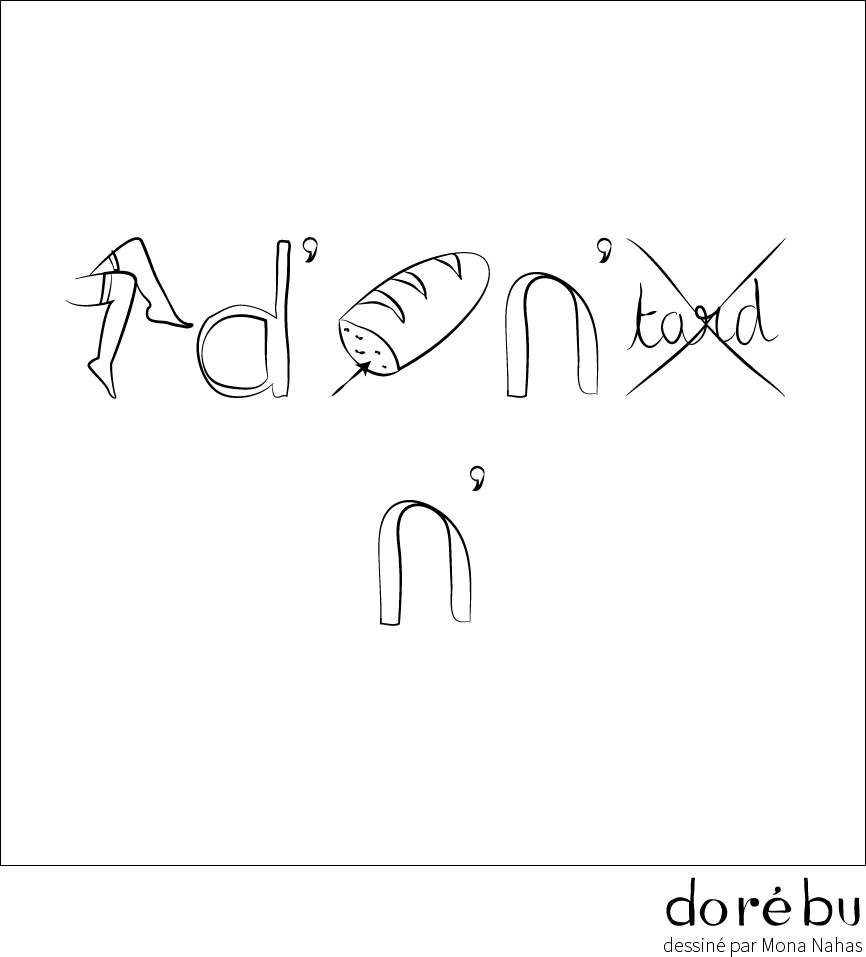 d' n' tard
n'
dorébu
dessiné par Mona Nahas